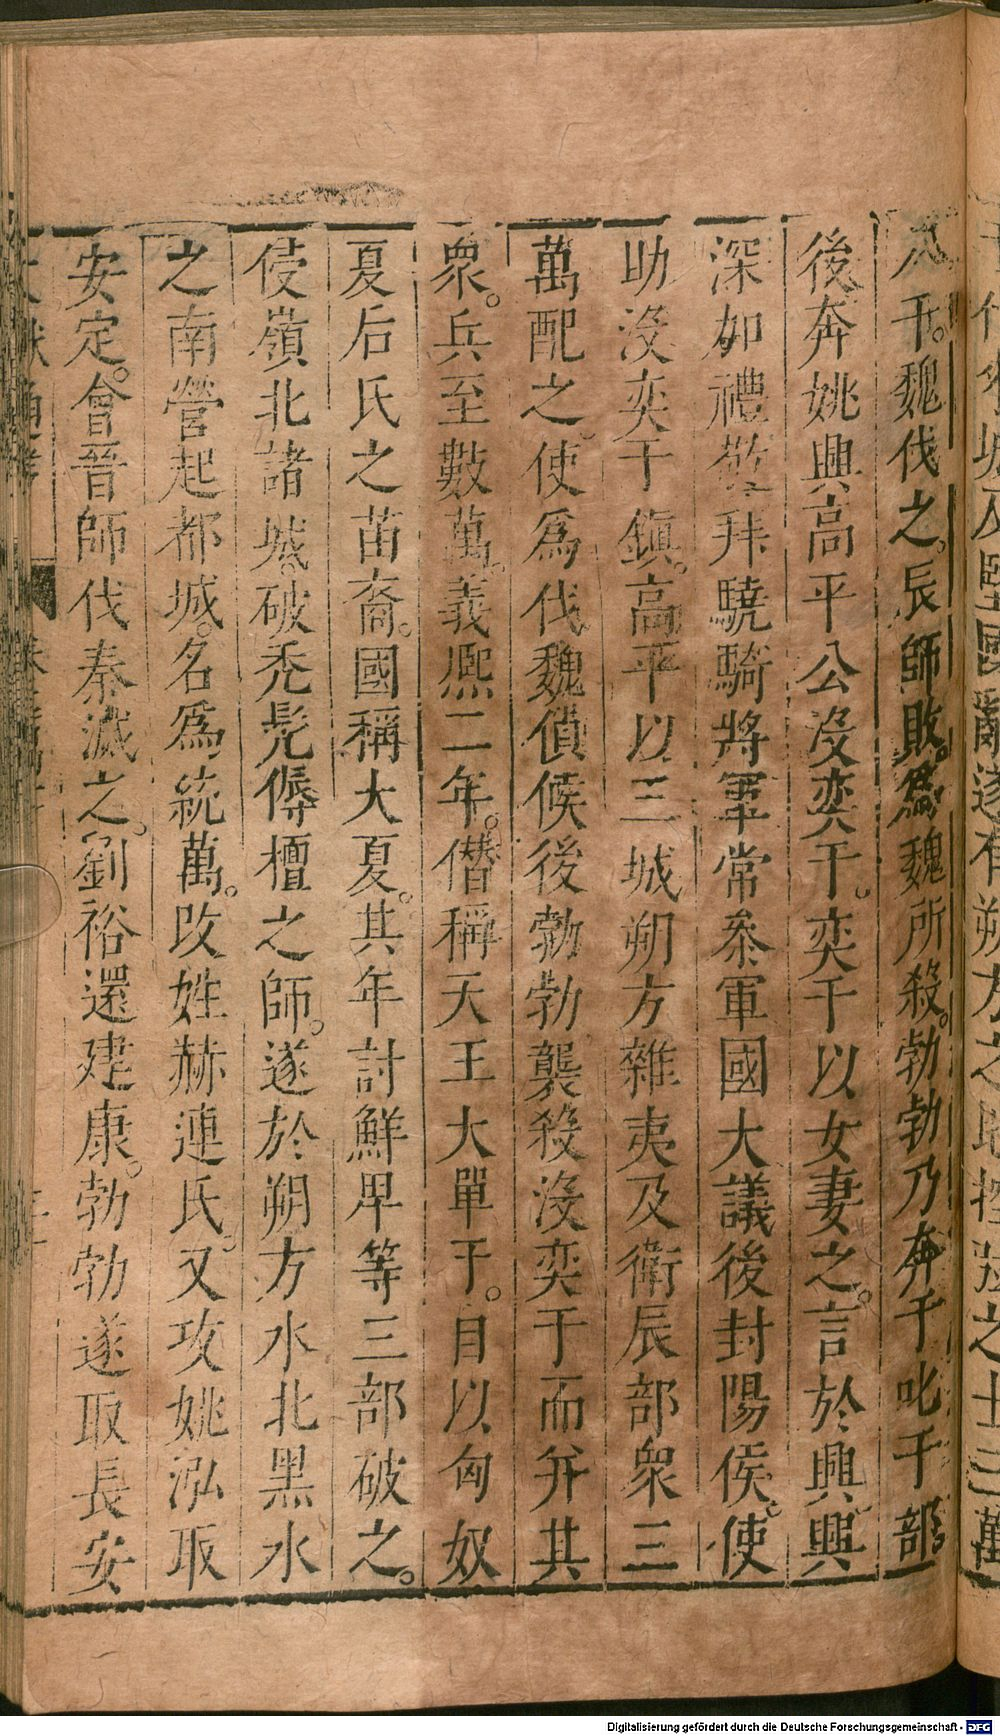 八千。魏伐之。辰師敗。爲魏所殺。勃勃乃奔千叱千部
後奔姚興高平公沒奕干。奕干以女妻之。言於興興
深如禮敬拜驍騎將軍常叅軍國大議後封陽侯。使
助沒奕干鎮。高平以三城朔方雜夷及衛辰部衆三
萬配之。使爲伐魏偵候後勃勃襲殺沒奕于而并其
衆。兵至數萬。義熈二年。僭稱天王大單于。自以匈奴
夏后氏之苗裔。國稱大夏。其年討鮮卑等三部破之。
侵嶺北諸城。破禿髮傉檀之師。遂於朔方水北黑水
之南營起都城。名爲統萬。改姓赫連氏。又攻姚泓取
安定。會晉師伐秦滅之。劉裕還建康。勃勃遂取長安
Digitalisierung gefördert durch die Deutsche Forschungsgemeinschaft - DFG